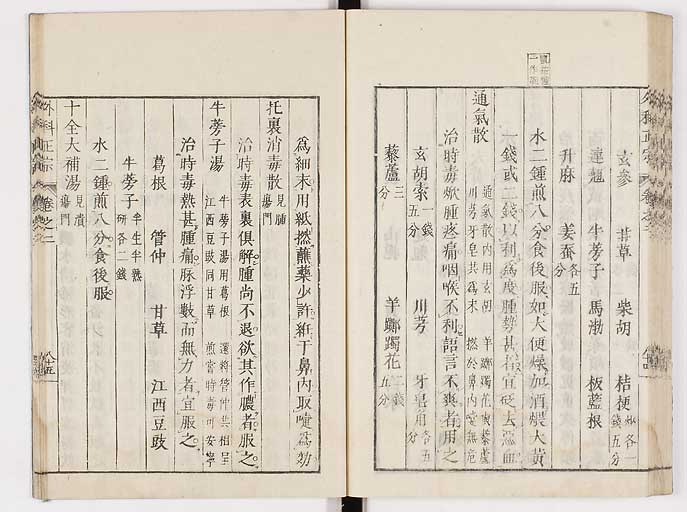 玄參 甘草 柴胡 桔梗 各一錢五分
連翹 牛蒡子 馬渤 板藍根
升麻 姜蚕 各五分
水二鍾煎八分食後服如大便燥加酒煨大黃
一錢或二錢以利為度腫勢甚者宜砭去惡血
通氣散
通氣散內用玄胡 羊躑躅花與藜蘆
川芎牙皂共為末 撚於鼻內嚏無危
治時毒焮腫疼痛咽喉不利語言不爽者用之
玄胡索 一錢五分 川芎 牙皂角 各五分
藜蘆 三分 羊躑躅花 二錢五分
為細末用紙撚蘸藥少許絍于鼻內取嚏為効
托裏消毒散 見腫瘍門
治時毒表裏俱解腫尚不退欲其作膿者服之
牛蒡子湯
牛蒡子湯用葛根 還將管仲共相呈
江西豆豉同甘草 煎嘗時毒可安寧
治時毒熱甚腫痛脉浮數而無力者宜服之
葛根 管仲 甘草 江西豆豉
牛蒡子 半生半熟研各二錢
水二鍾煎八分食後服
十全大補湯 見潰瘍門
外科正宗 卷之二 八十五